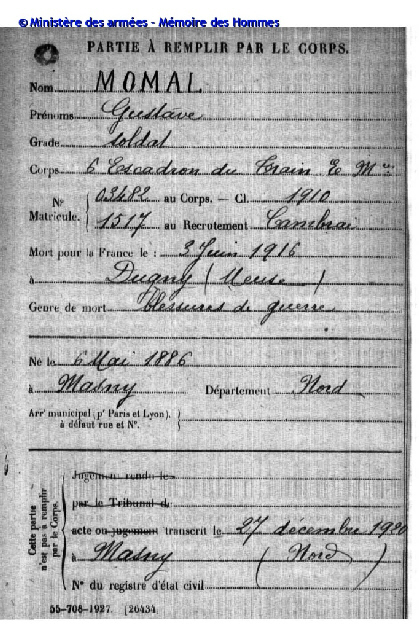 © Ministère des armées - Mémoire des Hommes
PARTIE À REMPLIR PAR LE CORPS.
Nom MOMAL
Prénoms Gustave
Grade soldat
Corps 6 Escadron du Train E. Mres
Nº 03482 au Corps. — Cl. 1910
Matricule. 1517 au Recrutement Cambrai
Mort pour la France le : 3 Juin 1916
à Dugny (Meuse)
Genre de mort blessures de guerre
Né le 6 Mai 1886
à Masny Département Nord
Arrt municipal (pr Paris et Lyon),
à défaut rue et Nº.
Cette partie
n'est pas à remplir
par le Corps.
Jugement rendu le
par le Tribunal d
acte ou jugement transcrit le 27 décembre 1920
à Masny (Nord)
Nº du registre d'état civil
55-708-1927. [26434]